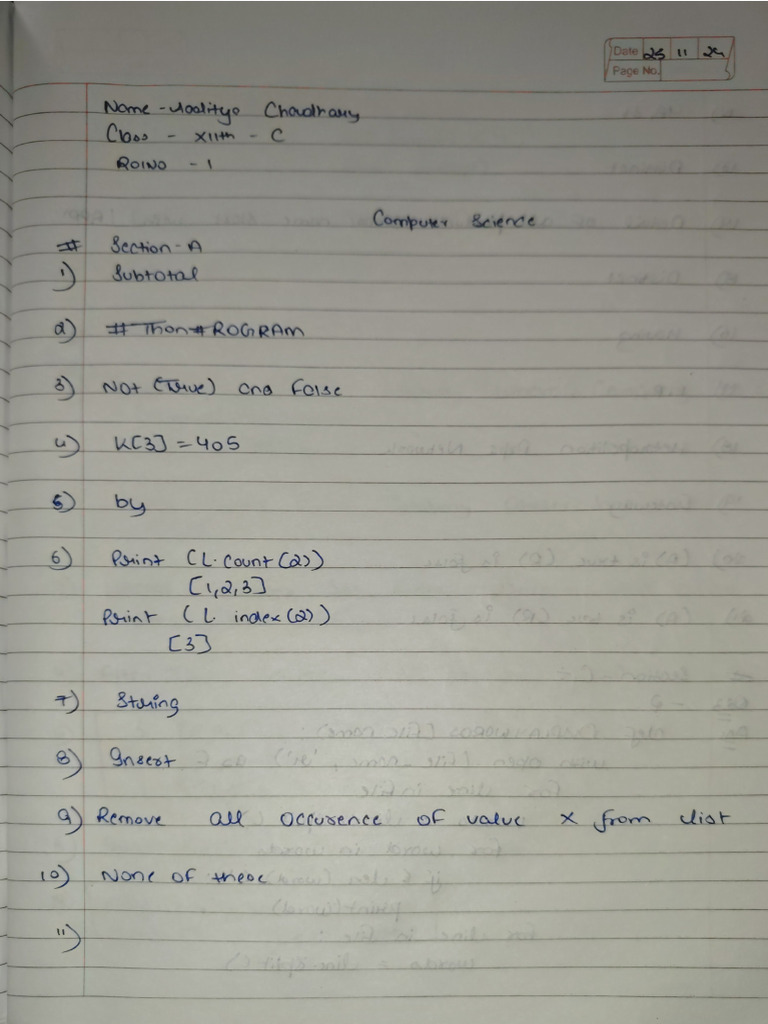 Date 25 11 24
Page No.
Name - Aaditya Chaudhary
Class - XIIth - C
Rolno - 1
Computer Science
# Section - A
1) Subtotal
2) # Thon # ROGRAM
3) Not (True) and False
4) K[3] = 405
5) by
6) Print (L.count(2))
[1,2,3]
Print (L. index(2))
[3]
7) String
8) Insert
9) Remove all occurence of value x from list
10) None of these
11)